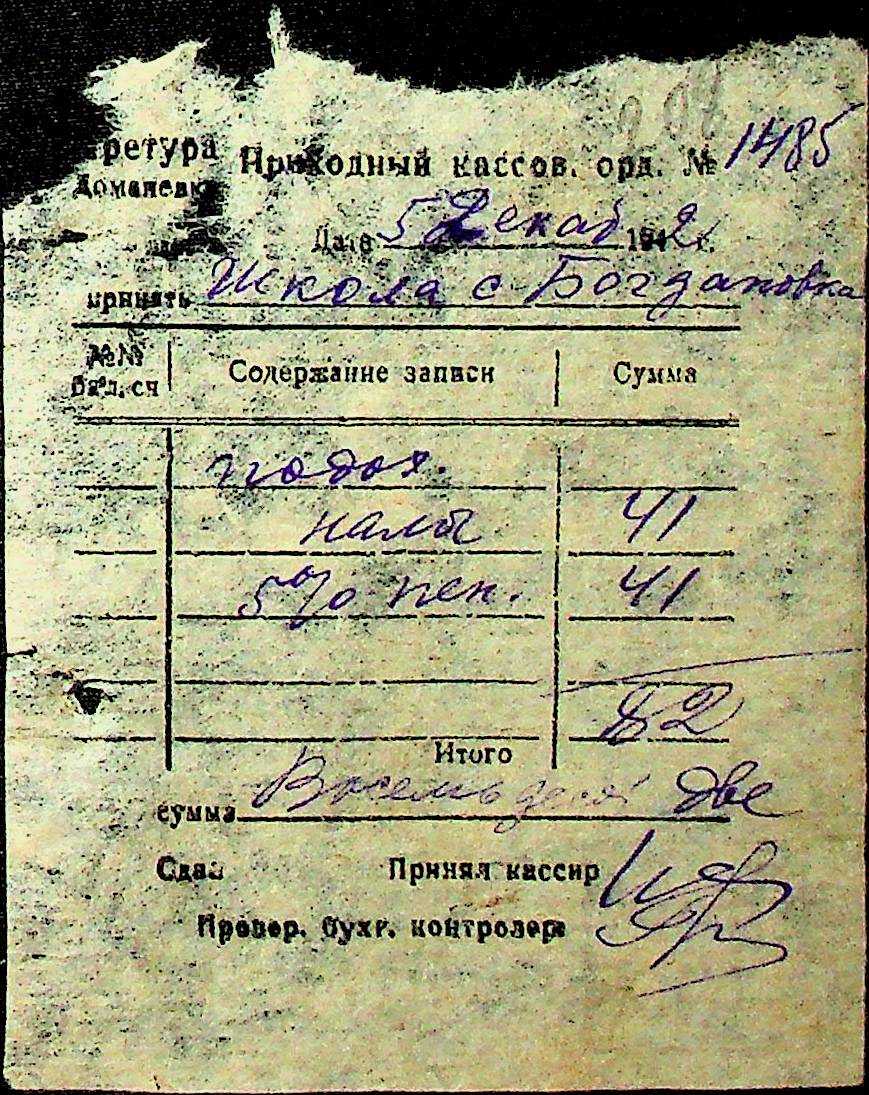 ретура Приходный кассов. орд. № 1485
Доманевка
Дата 5 Декаб 1942 г.
принять Школа с Богдановка
№№ бал. сч Содержание записи Сумма
подох.
налог 41
5% пен. 41
82
Итого
сумма Восемьдесят две
Сдал Принял кассир
Провер. бухг. контролер